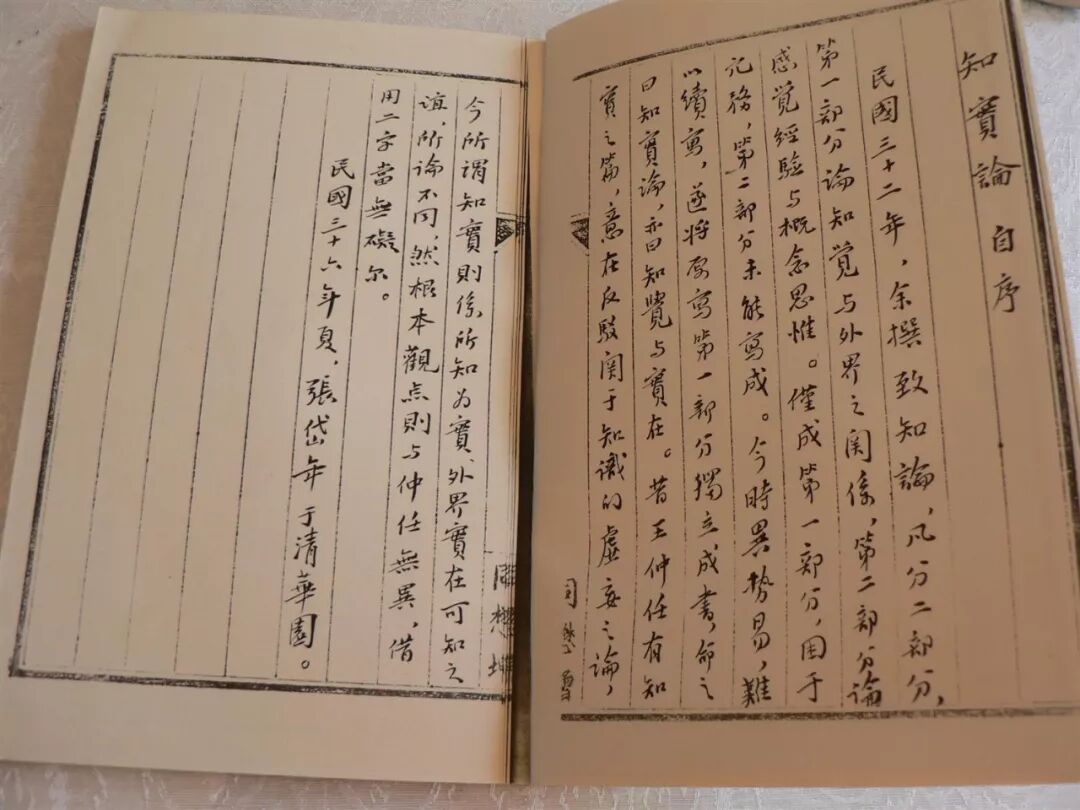 知實論 自序
民國三十二年，余撰致知論，凡分二部分，
第一部分論知覚与外界之関係，第二部分論
感覚經驗与概念思惟。僅成第一部分，困于
冗務，第二部分未能寫成。今時異勢易，難
以續寫，遂將原寫第一部分獨立成書，命之
曰知實論，亦曰知覺与實在。昔王仲任有知
實之篇，意在反駁関于知識的虛妄之論，
今所謂知實則係所知为實、外界實在可知之
誼，所论不同，然根本觀点則与仲任無異，借
用二字當無礙尔。
民國三十六年夏，張岱年于清華園。